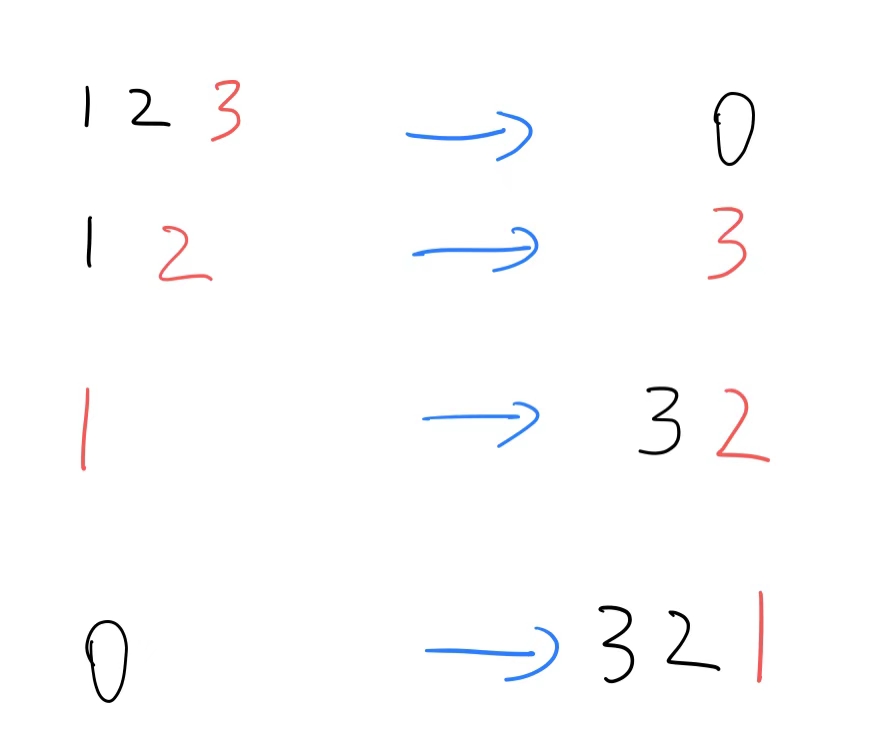 1 2 3 → 0
1 2 → 3
1 → 3 2
0 → 3 2 1